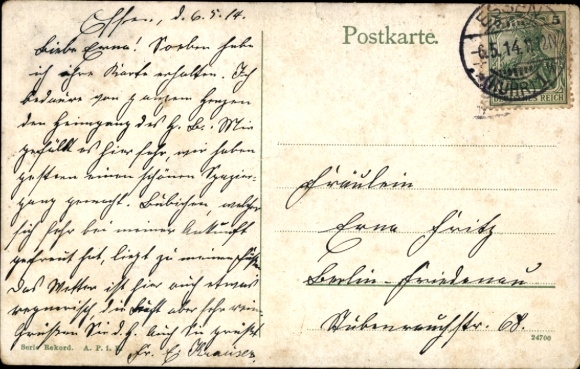 Essen, d. 6.5.14.
Liebe Erna! Soeben habe
ich Ihre Karte erhalten. Ich
bedaure von ganzem Herzen
den Heimgang des H. B. Mir
gefällt es hier sehr, wir haben
gestern einen schönen Spazier-
gang gemacht. Bübchen, welcher
sich sehr bei meiner Ankunft
gefreut hat, liegt zu meinen Füßen
Das Wetter ist hier auch etwas
regnerisch, die Luft aber sehr rein.
Grüßen Sie d. H. Auch Sie grüßt
Fr. E. Krauser
Serie Rekord. A. P. i. B.
Postkarte.
ESSEN
-6.5.14.11-12N
(RUHR)
5
DEUTSCHES REICH
Fräulein
Erna Fritz
Berlin-Friedenau
Stubenrauchstr. 68.
24700